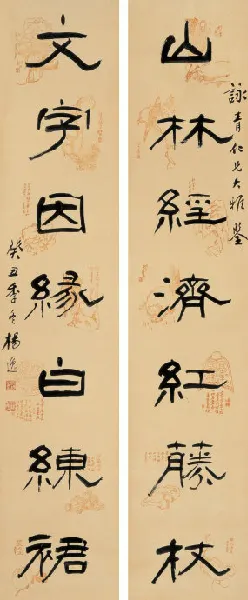 詠青仁兄大雅鑒
山林經濟紅藤杖
文字因緣白練裙
癸丑季冬楊逸